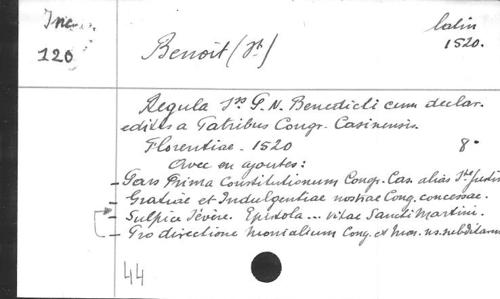 Inc. latin
120 Benoit (St) 1520.
Regula Sti P. N. Benedicti cum declar.
editis a Patribus Congr. Casinensis.
Florentiae - 1520 8°
Avec en ajoutes:
- Pars Prima Constitutionum Congr. Cas. alias Stae Justin
- Gratiae et Indulgentiae nostrae Cong. concessae.
- Sulpice Sévère. Epistola... vitae Sancti Martini.
- Pro directione monialium Cong. et Mon. ns. subditarum
44